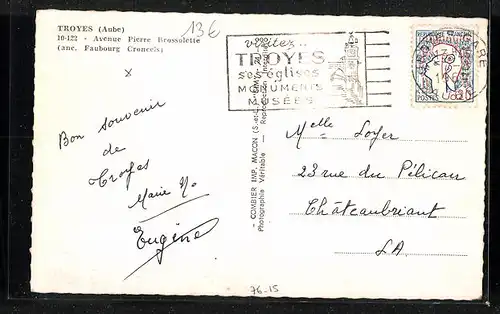 TROYES (Aube)
10-122 - Avenue Pierre Brossolette
(anc. Faubourg Croncels)
13€
visitez...
TROYES
ses églises
MONUMENTS
MUSÉES
RÉPUBLIQUE FRANÇAISE
POSTES
0,20
GARE
x
Bon souvenir
de
Troyes
Marie No
Eugène
- COMBIER IMP. MACON
Photographie Véritable - Reproduction
Melle Loyer
23 rue du Pélican
Châteaubriant
LA
76-15